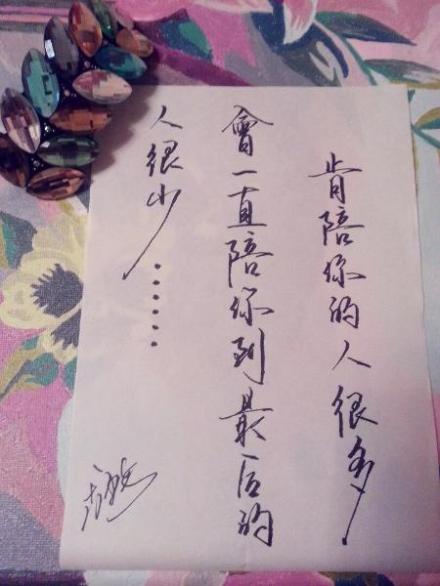 肯陪你的人很多
會一直陪你到最后的
人很少……